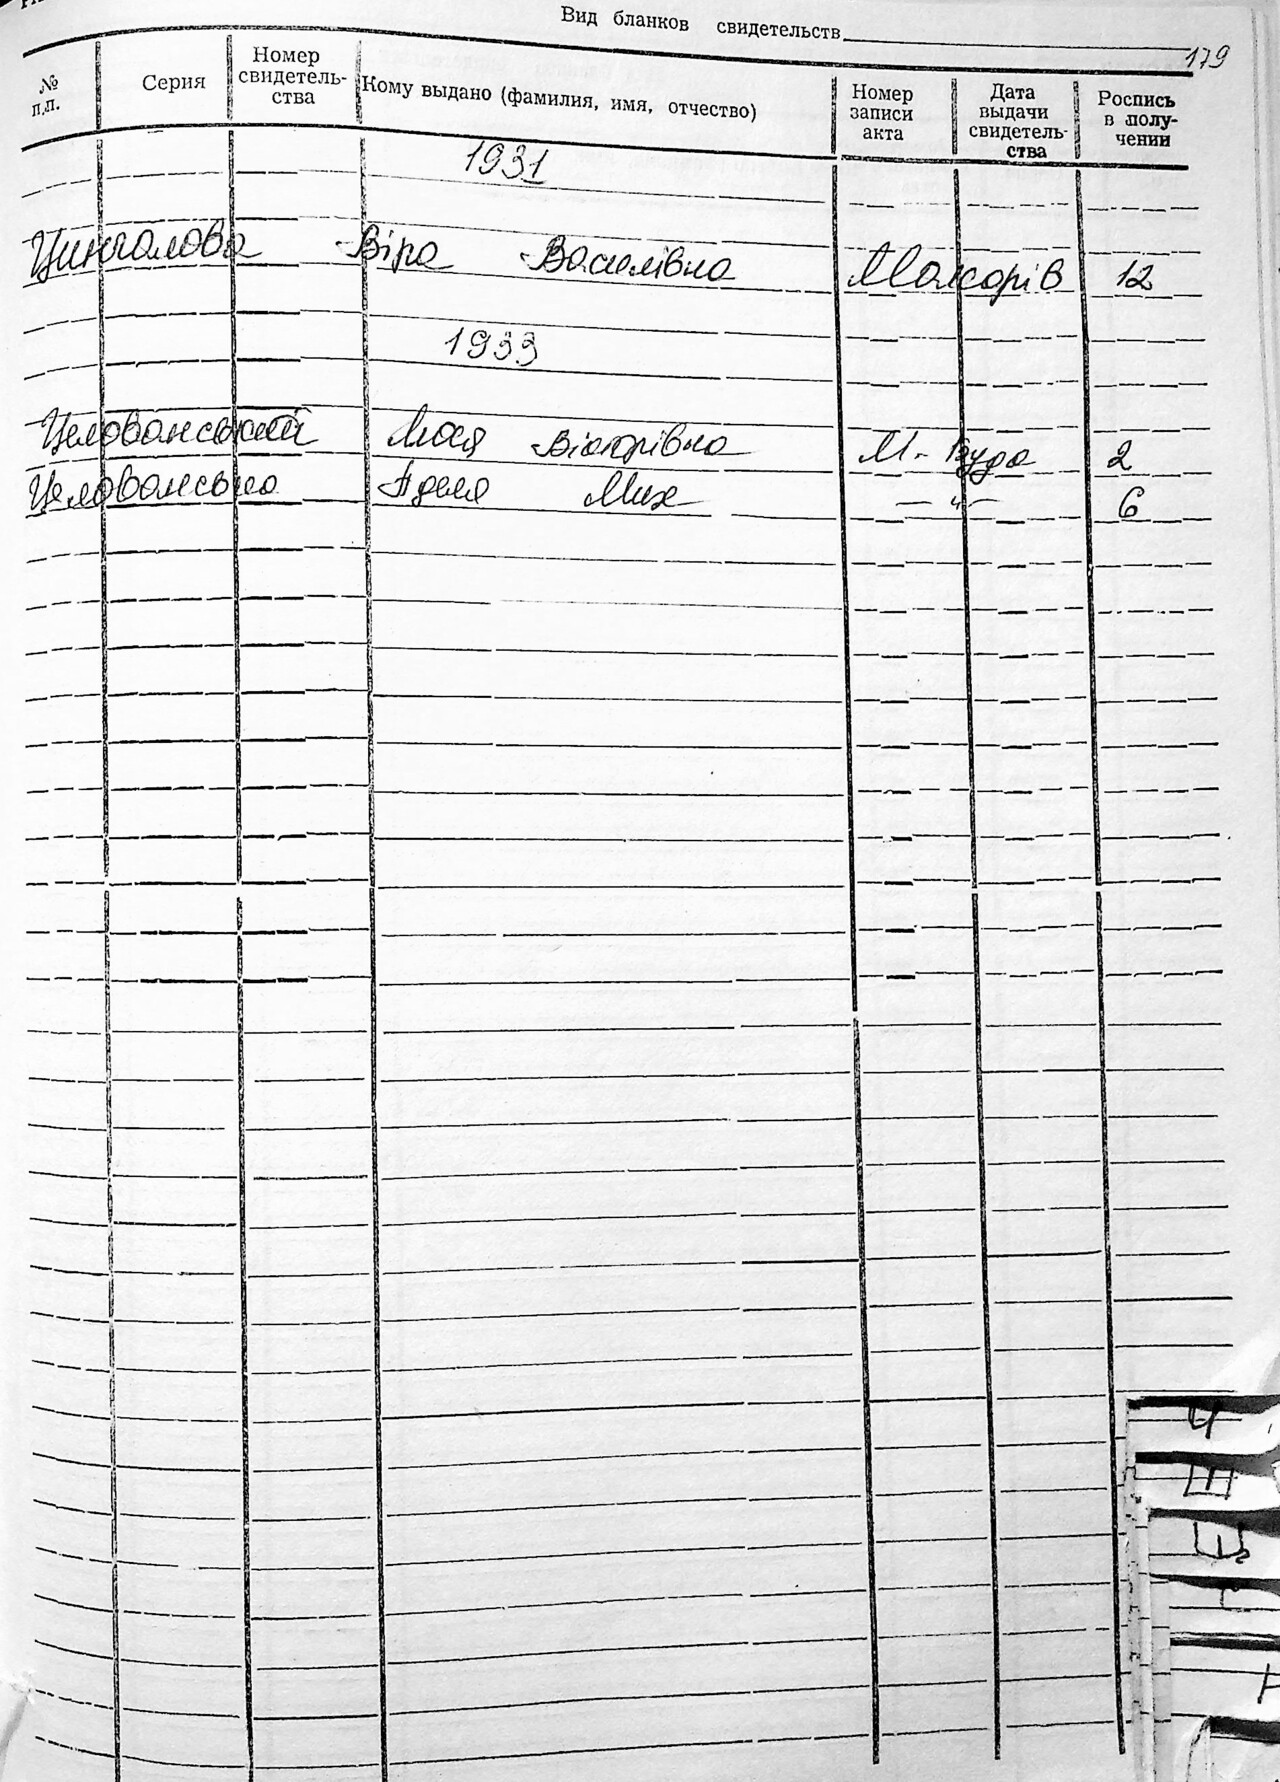 Вид бланков свидетельств
179
№ п.п. Серия Номер свидетель-ства Кому выдано (фамилия, имя, отчество) Номер записи акта Дата выдачи свидетель-ства Роспись в полу-чении
1931
Цингалова Віра Василівна Макарів 12
1933
Целованський Люся Вікторівна М-Буда 2
Целованська Аделя Мих —"— 6
Ч
Ш
Щ